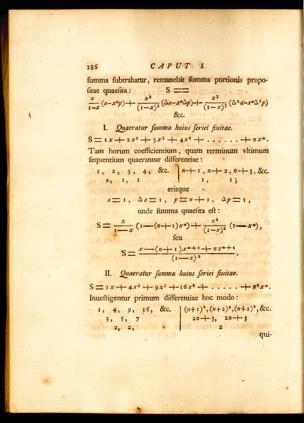 286 CAPUT I.
summa subtrahatur, remanebit summa portionis propo-
sitae quaesita: S ==
x/(1-x) (a-xⁿp) + x²/(1-x)² (Δa-xⁿΔp) + x³/(1-x)³ (Δ²a-xⁿΔ²p)
&c.
I. Quaeratur summa huius seriei finitae.
S = 1x + 2x² + 3x³ + 4x⁴ + . . . . . . . + nxⁿ.
Tam horum coefficientium, quam terminum vltimum
sequentium quaerantur differentiae:
1, 2, 3, 4, &c. | n+1, n+2, n+3, &c.
1, 1, 1 | 1, 1;
eritque
a=1, Δa=1, p=n+1, Δp=1,
unde summa quaesita est:
S = x/(1-x) (1-(n+1)xⁿ) + x²/(1-x)² (1-xⁿ),
seu
S = (x-(n+1)xⁿ⁺¹+nxⁿ⁺²)/(1-x)².
II. Quaeratur summa huius seriei finitae.
S = 1x + 4x² + 9x³ + 16x⁴ + . . . . . + n²xⁿ.
Inuestigentur primum differentiae hoc modo:
1, 4, 9, 16, &c. | (n+1)², (n+2)², (n+3)², &c.
3, 5, 7 | 2n+3, 2n+5
2, 2, | 2
qui-